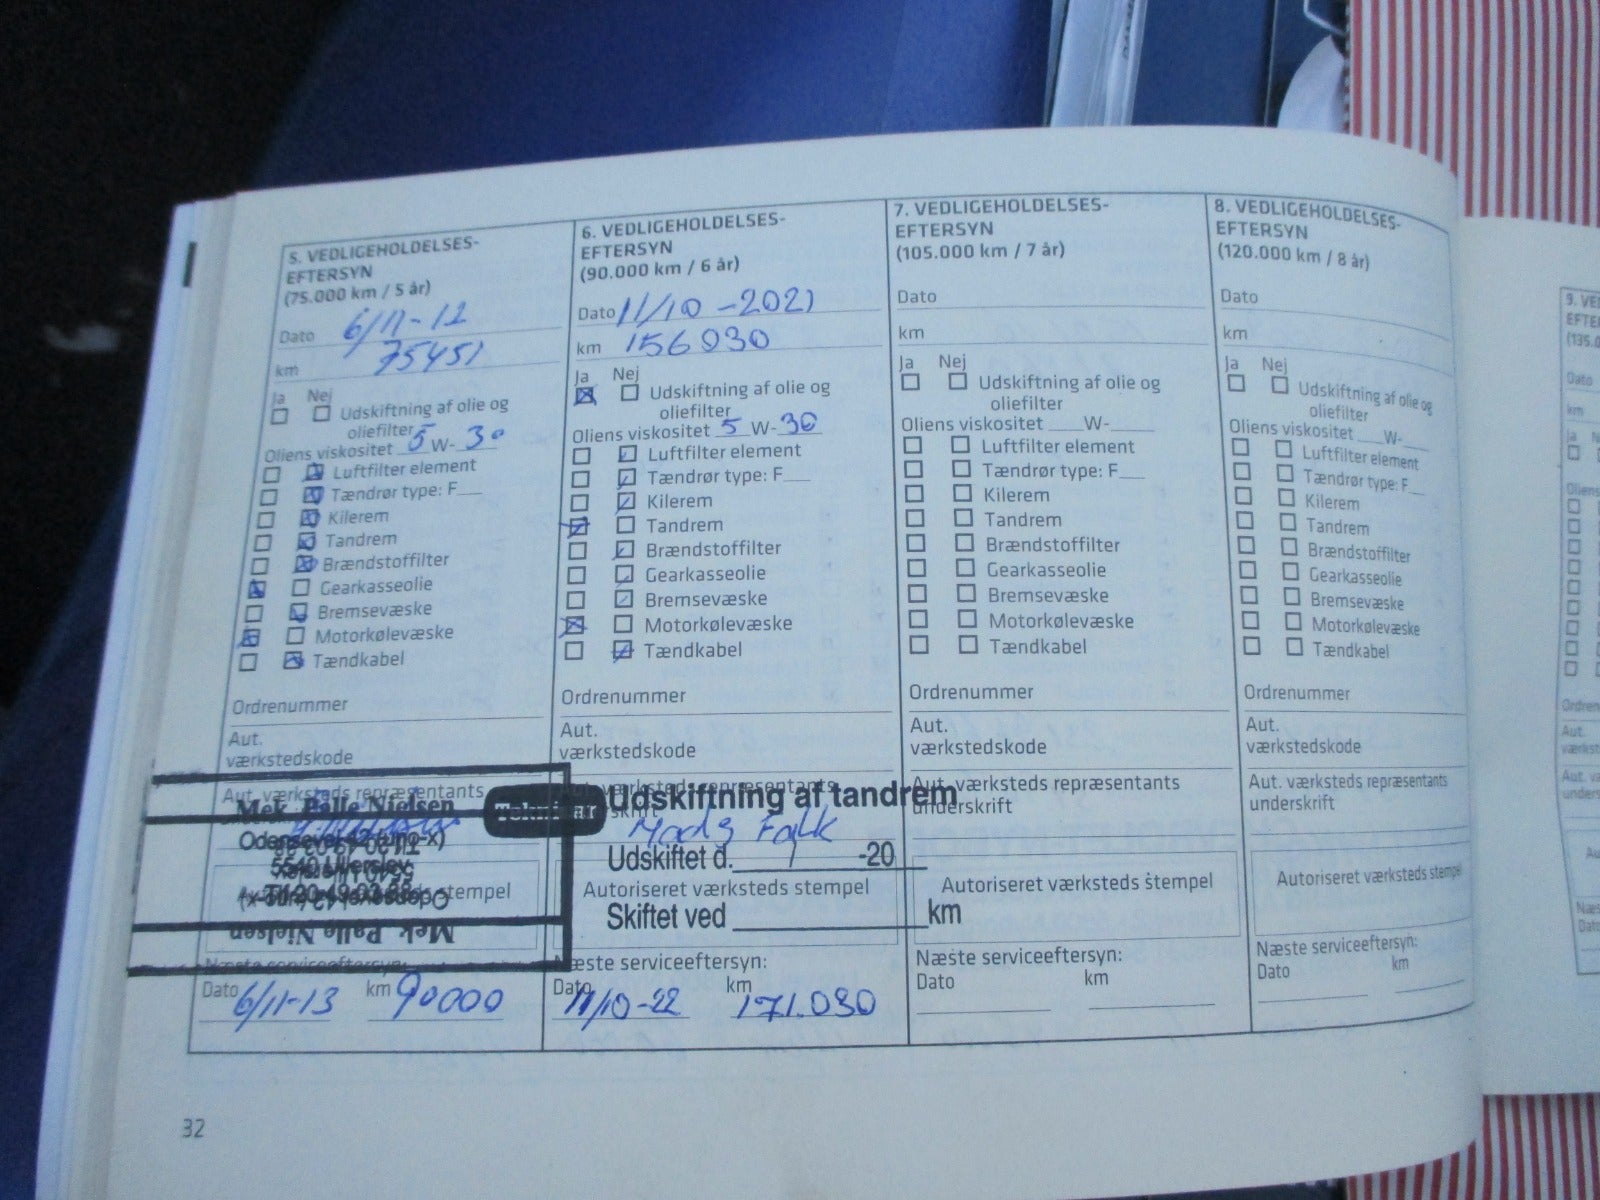 5. VEDLIGEHOLDELSES-
EFTERSYN
(75.000 km / 5 år)
Dato 6/11-12
km 75451
Ja Nej
Udskiftning af olie og
oliefilter
Oliens viskositet 5 W- 30
Luftfilter element
Tændrør type: F__
Kilerem
Tandrem
Brændstoffilter
Gearkasseolie
Bremsevæske
Motorkølevæske
Tændkabel
Ordrenummer
Aut.
værkstedskode
Aut. værksteds repræsentants
Mek. Palle Nielsen
5540 Ullerslev
stempel
Mek. Palle Nielsen
Næste serviceeftersyn:
Dato 6/11-13 km 90000
6. VEDLIGEHOLDELSES-
EFTERSYN
(90.000 km / 6 år)
Dato 11/10-2021
km 156030
Ja Nej
Udskiftning af olie og
oliefilter
Oliens viskositet 5 W- 30
Luftfilter element
Tændrør type: F__
Kilerem
Tandrem
Brændstoffilter
Gearkasseolie
Bremsevæske
Motorkølevæske
Tændkabel
Ordrenummer
Aut.
værkstedskode
Aut. værksteds repræsentants
Udskiftning af tandrem
Mads Falk
Udskiftet d. / -20
Autoriseret værksteds stempel
Skiftet ved km
Næste serviceeftersyn:
Dato km
11/10-22 171.030
7. VEDLIGEHOLDELSES-
EFTERSYN
(105.000 km / 7 år)
Dato
km
Ja Nej
Udskiftning af olie og
oliefilter
Oliens viskositet __W-__
Luftfilter element
Tændrør type: F__
Kilerem
Tandrem
Brændstoffilter
Gearkasseolie
Bremsevæske
Motorkølevæske
Tændkabel
Ordrenummer
Aut.
værkstedskode
Aut. værksteds repræsentants
underskrift
Autoriseret værksteds stempel
Næste serviceeftersyn:
Dato km
8. VEDLIGEHOLDELSES-
EFTERSYN
(120.000 km / 8 år)
Dato
km
Ja Nej
Udskiftning af olie og
oliefilter
Oliens viskositet __W-__
Luftfilter element
Tændrør type: F__
Kilerem
Tandrem
Brændstoffilter
Gearkasseolie
Bremsevæske
Motorkølevæske
Tændkabel
Ordrenummer
Aut.
værkstedskode
Aut. værksteds repræsentants
underskrift
Autoriseret værksteds stempel
Næste serviceeftersyn:
Dato km
32